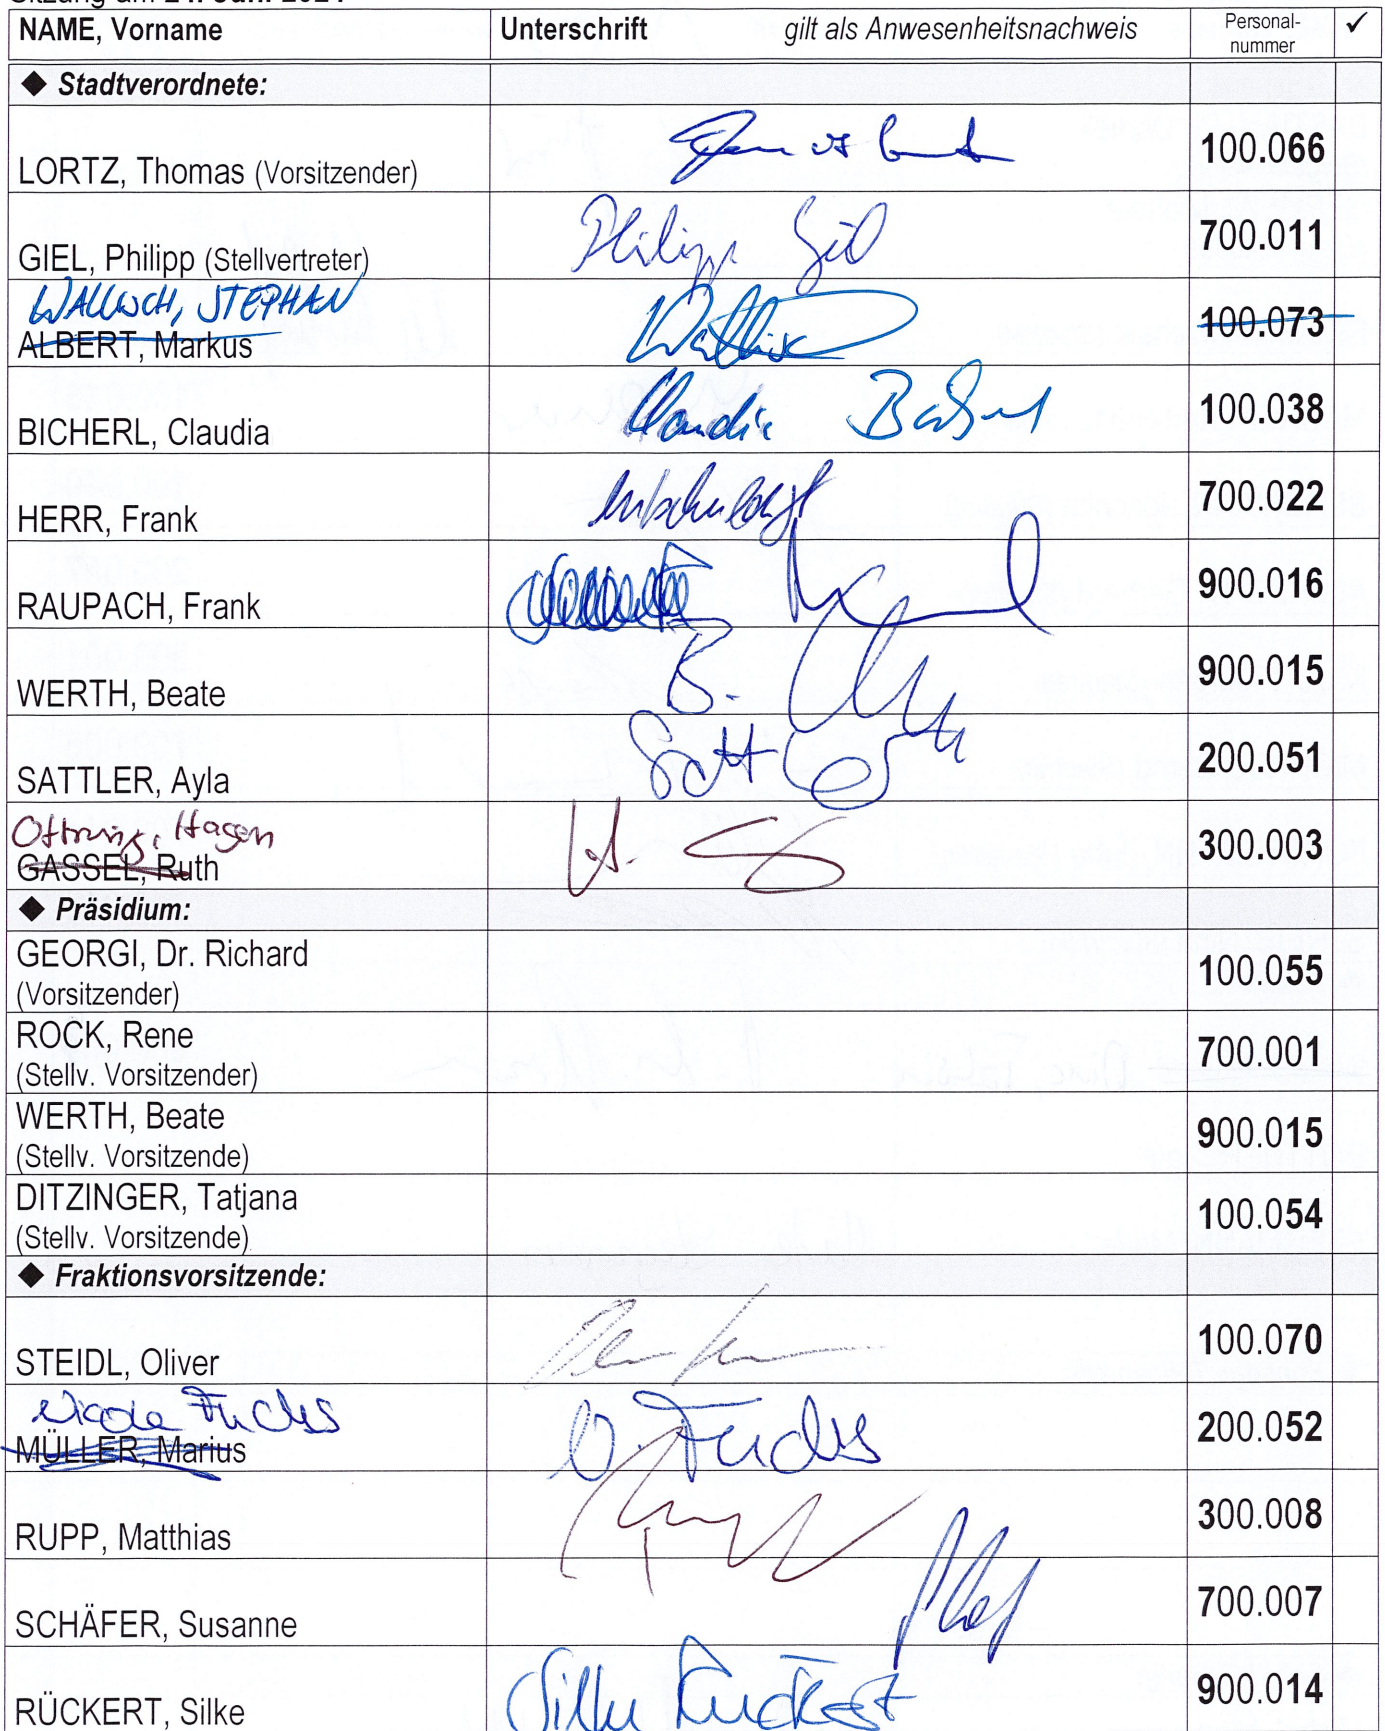 Sitzung am 24. Juni 2024
NAME, Vorname Unterschrift gilt als Anwesenheitsnachweis Personal-nummer ✓
◆ Stadtverordnete:
LORTZ, Thomas (Vorsitzender) 100.066
GIEL, Philipp (Stellvertreter) Philipp Giel 700.011
WALLOCH, STEPHAN
ALBERT, Markus 100.073
BICHERL, Claudia Claudia 100.038
HERR, Frank entschuldigt 700.022
RAUPACH, Frank 900.016
WERTH, Beate B. 900.015
SATTLER, Ayla Sattler 200.051
Hagen
GASSEL, Ruth H. 300.003
◆ Präsidium:
GEORGI, Dr. Richard
(Vorsitzender) 100.055
ROCK, Rene
(Stellv. Vorsitzender) 700.001
WERTH, Beate
(Stellv. Vorsitzende) 900.015
DITZINGER, Tatjana
(Stellv. Vorsitzende) 100.054
◆ Fraktionsvorsitzende:
STEIDL, Oliver 100.070
Nicole Fuchs
MÜLLER, Marius N. Fuchs 200.052
RUPP, Matthias 300.008
SCHÄFER, Susanne 700.007
RÜCKERT, Silke Silke Rückert 900.014